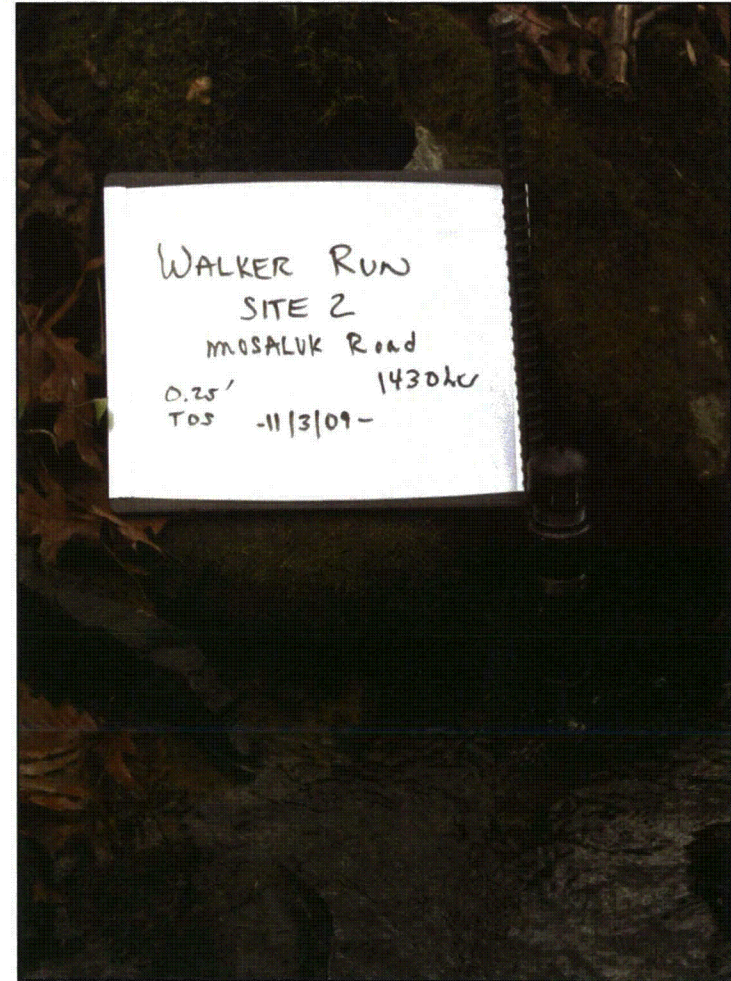 WALKER RUN
SITE 2
MOSALUK Road
0.25' 1430hr
TOS -11/3/09-